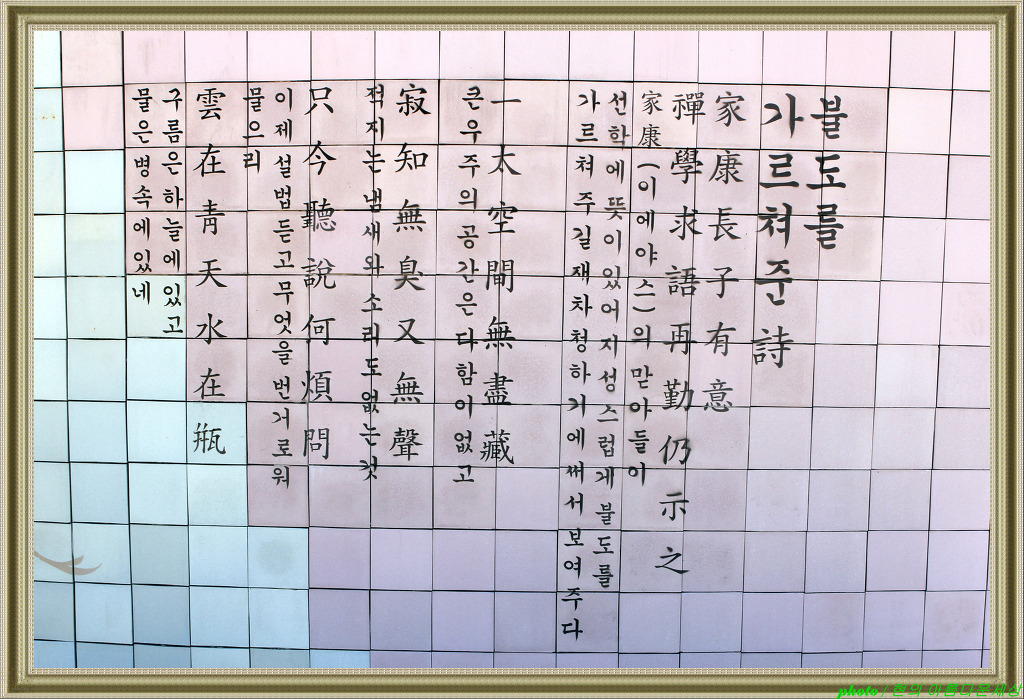 불도를
가르쳐 준 詩
家康長子有意
禪學求語再勤仍示之
家康(이에야스)의 맏아들이
선학에 뜻이 있어 지성스럽게 불도를
가르쳐 주길 재차 청하기에 써서 보여주다
一太空間無盡藏
큰 우주의 공간은 다함이 없고
寂知無臭又無聲
적지는 냄새와 소리도 없는 것
只今聽說何煩問
이제 설법 듣고 무엇을 번거로워
물으리
雲在靑天水在甁
구름은 하늘에 있고
물은 병속에 있네
photo / 아름다운세상